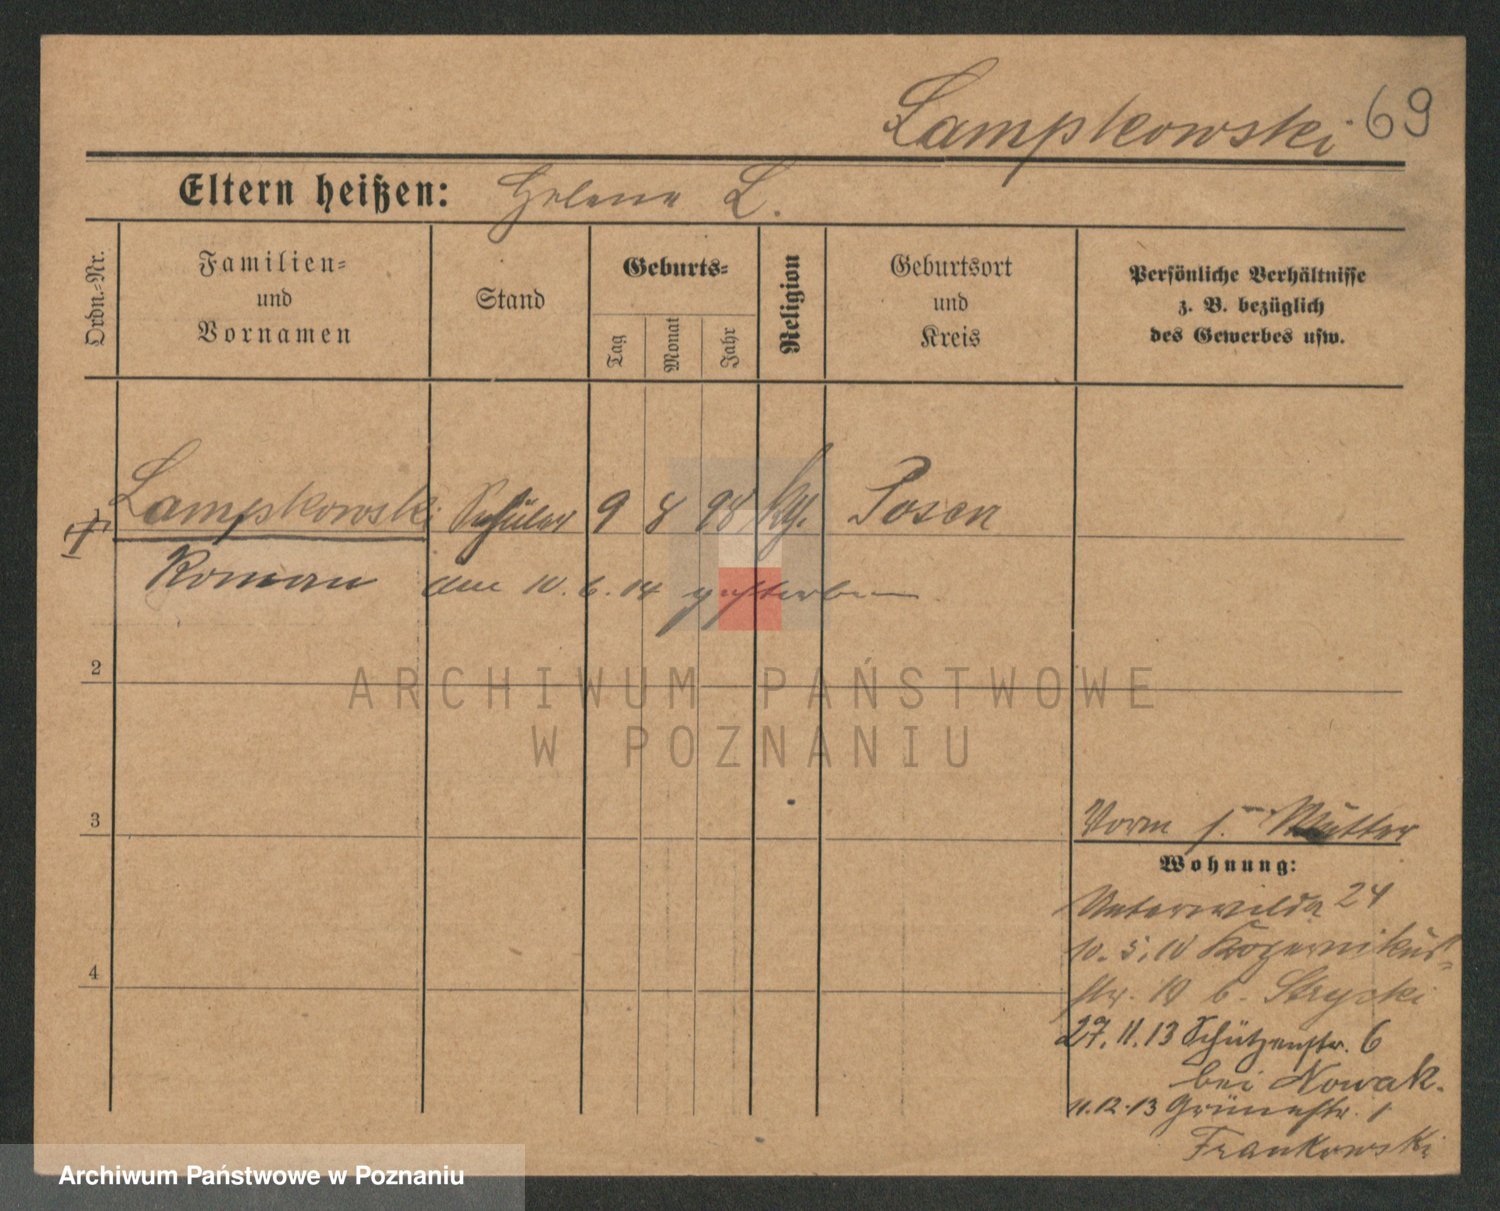 Lampkowski 69
Eltern heißen: Helene L.
Ordn.-Nr.
Familien-
und
Vornamen
Stand
Geburts-
Tag
Monat
Jahr
Religion
Geburtsort
und
Kreis
Persönliche Verhältnisse
z. B. bezüglich
des Gewerbes usw.
Lampkowski Schüler 9 8 98 Posen
Roman am 10. 6. 14 gestorben
2
ARCHIWUM PAŃSTWOWE
W POZNANIU
3
4
Vorm s. Mutter
Wohnung:
Unterwilda 24
10. 5. 10 Kopernikus-
str. b. Strycki
27. 11. 13 Schützenstr. 6
bei Nowak.
11. 12. 13 Grünestr. 1
Frankowski
Archiwum Państwowe w Poznaniu